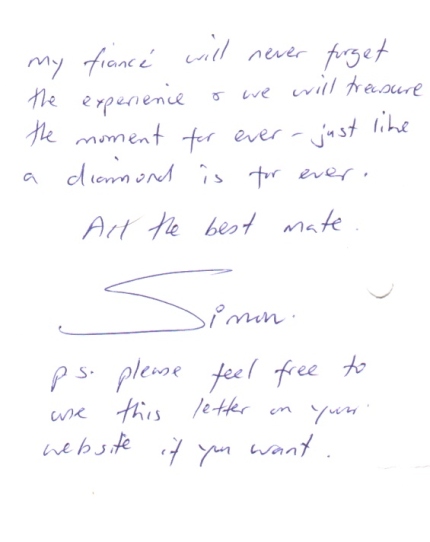 my fiancé will never forget
the experience & we will treasure
the moment for ever - just like
a diamond is for ever.
All the best mate.
Simon.
p s. please feel free to
use this letter on your
website if you want.